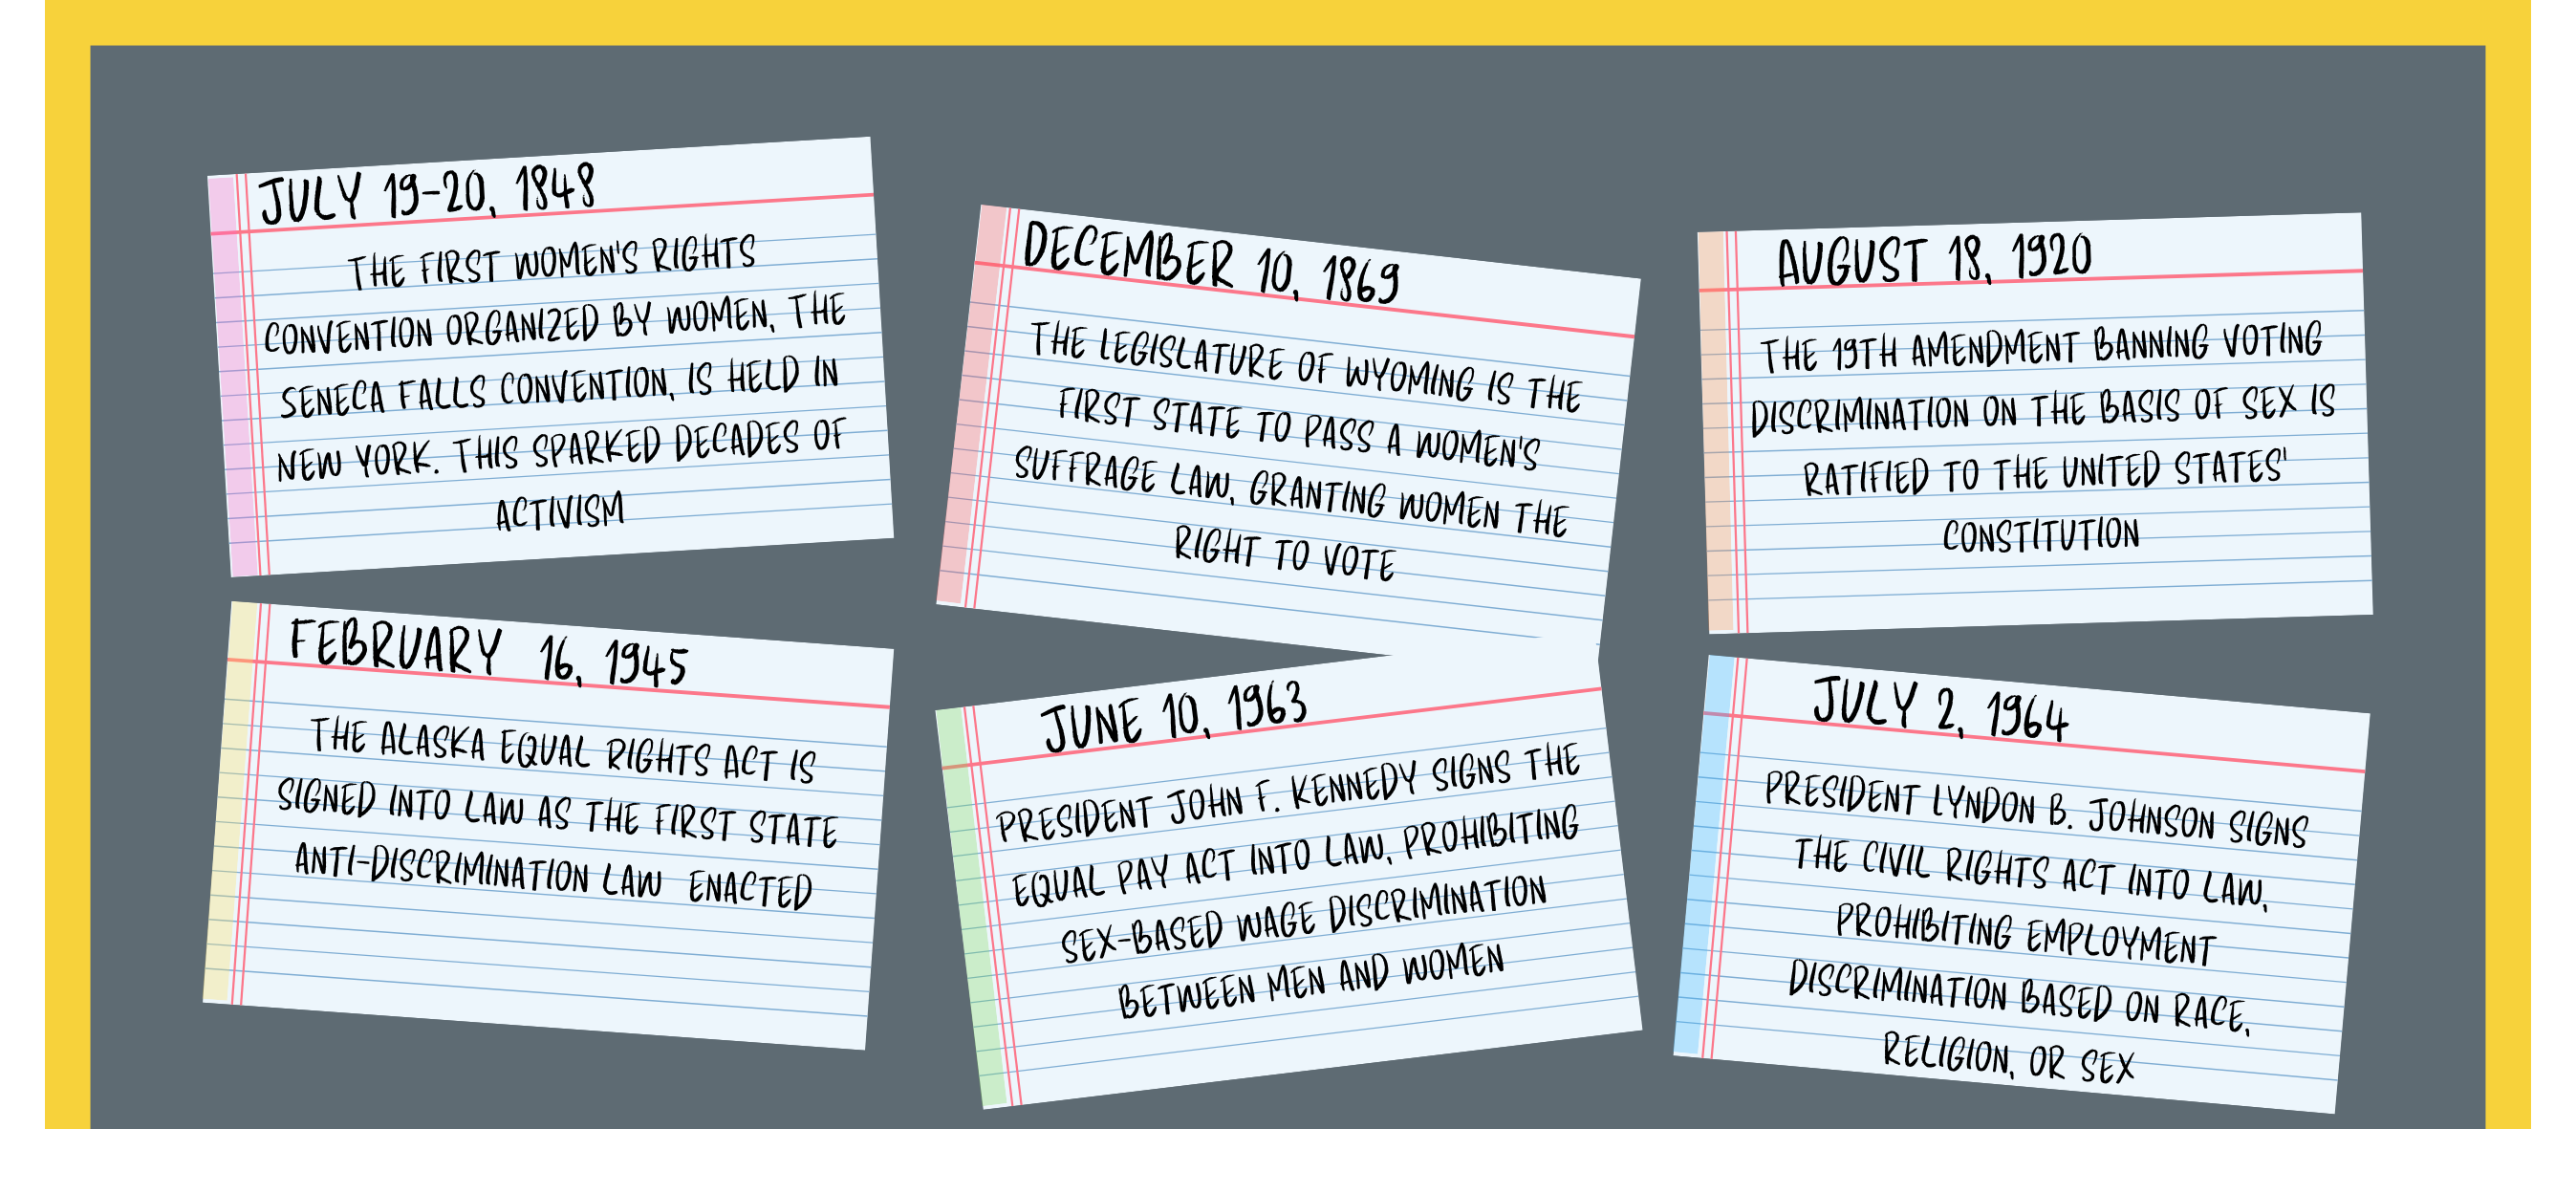 JULY 19-20, 1848
THE FIRST WOMEN'S RIGHTS
CONVENTION ORGANIZED BY WOMEN, THE
SENECA FALLS CONVENTION, IS HELD IN
NEW YORK. THIS SPARKED DECADES OF
ACTIVISM
DECEMBER 10, 1869
THE LEGISLATURE OF WYOMING IS THE
FIRST STATE TO PASS A WOMEN'S
SUFFRAGE LAW, GRANTING WOMEN THE
RIGHT TO VOTE
AUGUST 18, 1920
THE 19TH AMENDMENT BANNING VOTING
DISCRIMINATION ON THE BASIS OF SEX IS
RATIFIED TO THE UNITED STATES'
CONSTITUTION
FEBRUARY 16, 1945
THE ALASKA EQUAL RIGHTS ACT IS
SIGNED INTO LAW AS THE FIRST STATE
ANTI-DISCRIMINATION LAW ENACTED
JUNE 10, 1963
PRESIDENT JOHN F. KENNEDY SIGNS THE
EQUAL PAY ACT INTO LAW, PROHIBITING
SEX-BASED WAGE DISCRIMINATION
BETWEEN MEN AND WOMEN
JULY 2, 1964
PRESIDENT LYNDON B. JOHNSON SIGNS
THE CIVIL RIGHTS ACT INTO LAW,
PROHIBITING EMPLOYMENT
DISCRIMINATION BASED ON RACE,
RELIGION, OR SEX